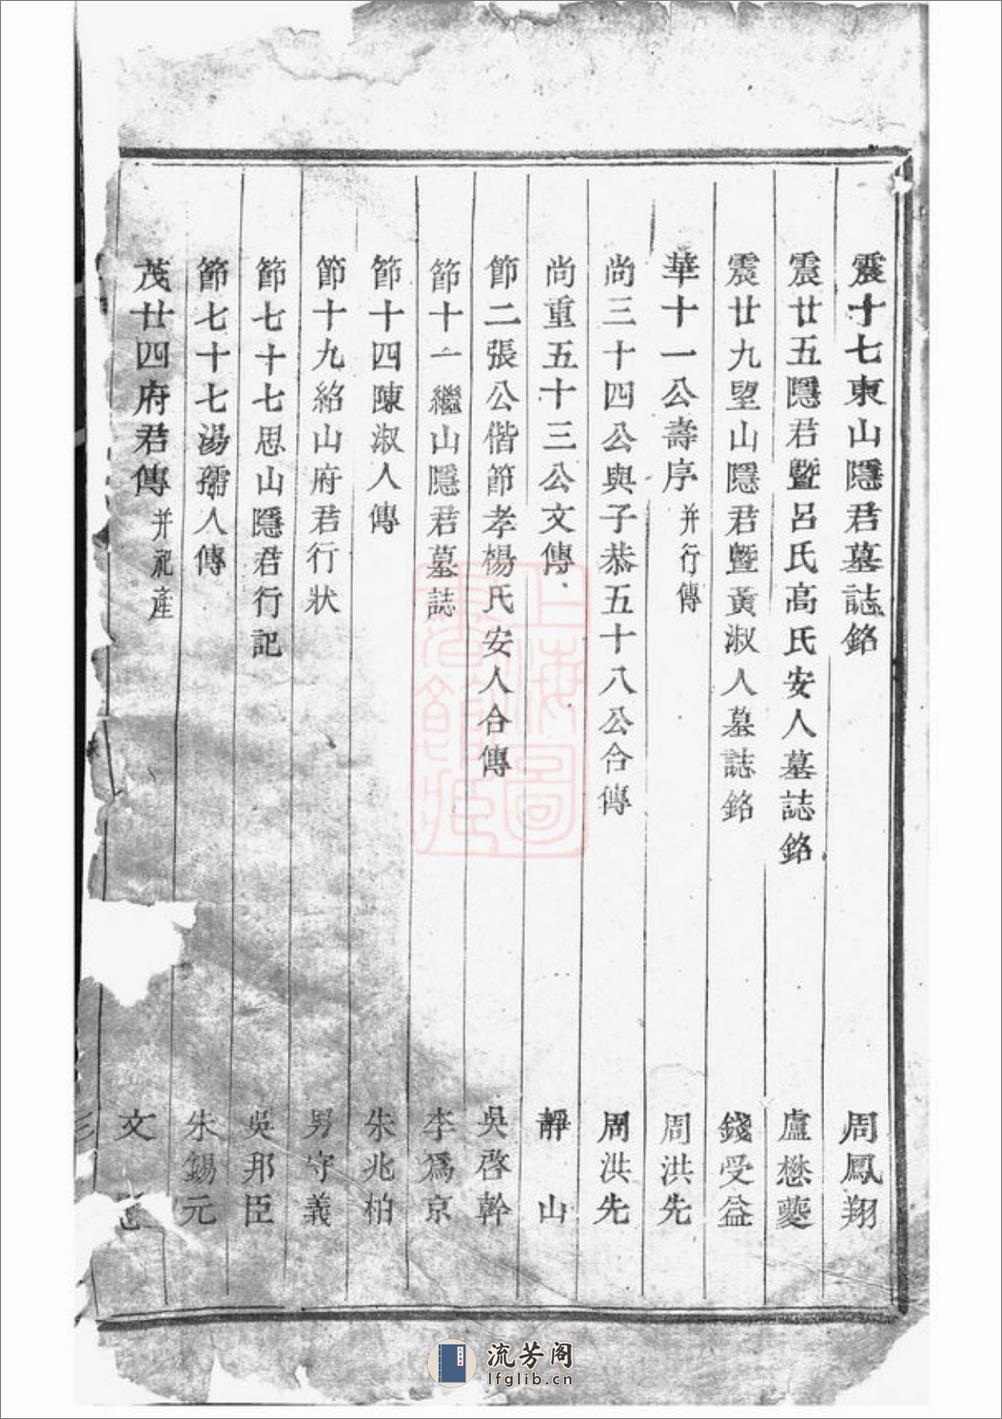 震十七東山隱君墓誌銘 周鳳翔
震廿五隱君暨呂氏高氏安人墓誌銘 盧懋藑
震廿九望山隱君暨黃淑人墓誌銘 錢受益
華十一公壽序 并行傳 周洪先
尚三十四公與子恭五十八公合傳 周洪先
尚重五十三公文傳 靜山
節二張公偕節孝楊氏安人合傳 吳啓幹
節十一繼山隱君墓誌 李爲京
節十四陳淑人傳 朱兆柏
節十九紹山府君行狀 男守義
節七十七思山隱君行記 吳邦臣
節七十七湯孺人傳 朱錫元
茂廿四府君傳 并祀產 文
三
上海圖書館藏
流芳阁
lfglib.cn